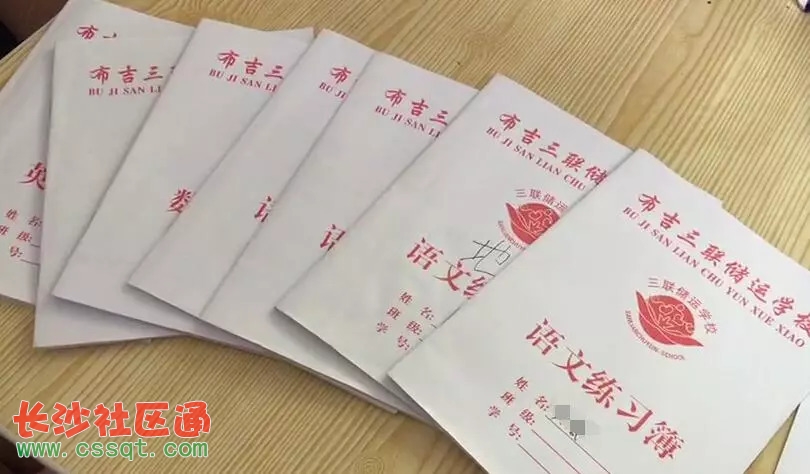 布
英
姓名:
班级:
学号:
布吉三联
BU JI SAN LIAN
布吉三
BU JI SAN LIAN
数
布
BU JI
语
布吉三
BU JI SAN L
语
布吉三联储
BU JI SAN LIAN CHU
三联储运
地
语文练
姓名:
班级:
学号:
布吉三联储运学校
BU JI SAN LIAN CHU YUN XUE XIAO
三联储运学校
SANLIANCHUYUN-SCHOOL
语文练习簿
姓名:
班级:
学号:
长沙社区通
www.cssqt.com